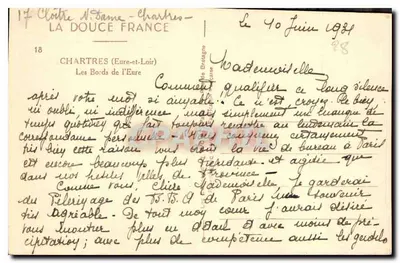 17 Cloître N. Dame - Chartres -
LA DOUCE FRANCE
18
CHARTRES (Eure-et-Loir)
Les Bords de l'Eure
Le 10 Juin 1931
28
Mademoiselle
Comment qualifier ce long silence
après votre mot si aimable! Ce n'est croyez-le bien
ni oubli, ni indifférence mais simplement un manque de
temps quotidien qui fait toujours remettre au lendemain la
correspondance
très bien cette raison vous dont la vie de bureau à Paris
est encore beaucoup plus et agitée que
dans nos petites villes de Province -
Comme vous, Chère Mademoiselle, je garderai
des Pèlerinages des de Paris un souvenir
très agréable. De tout mon cœur j'aurais désiré
vous montrer plus en détail et avec moins de pré-
cipitation; avec plus de compétence aussi les